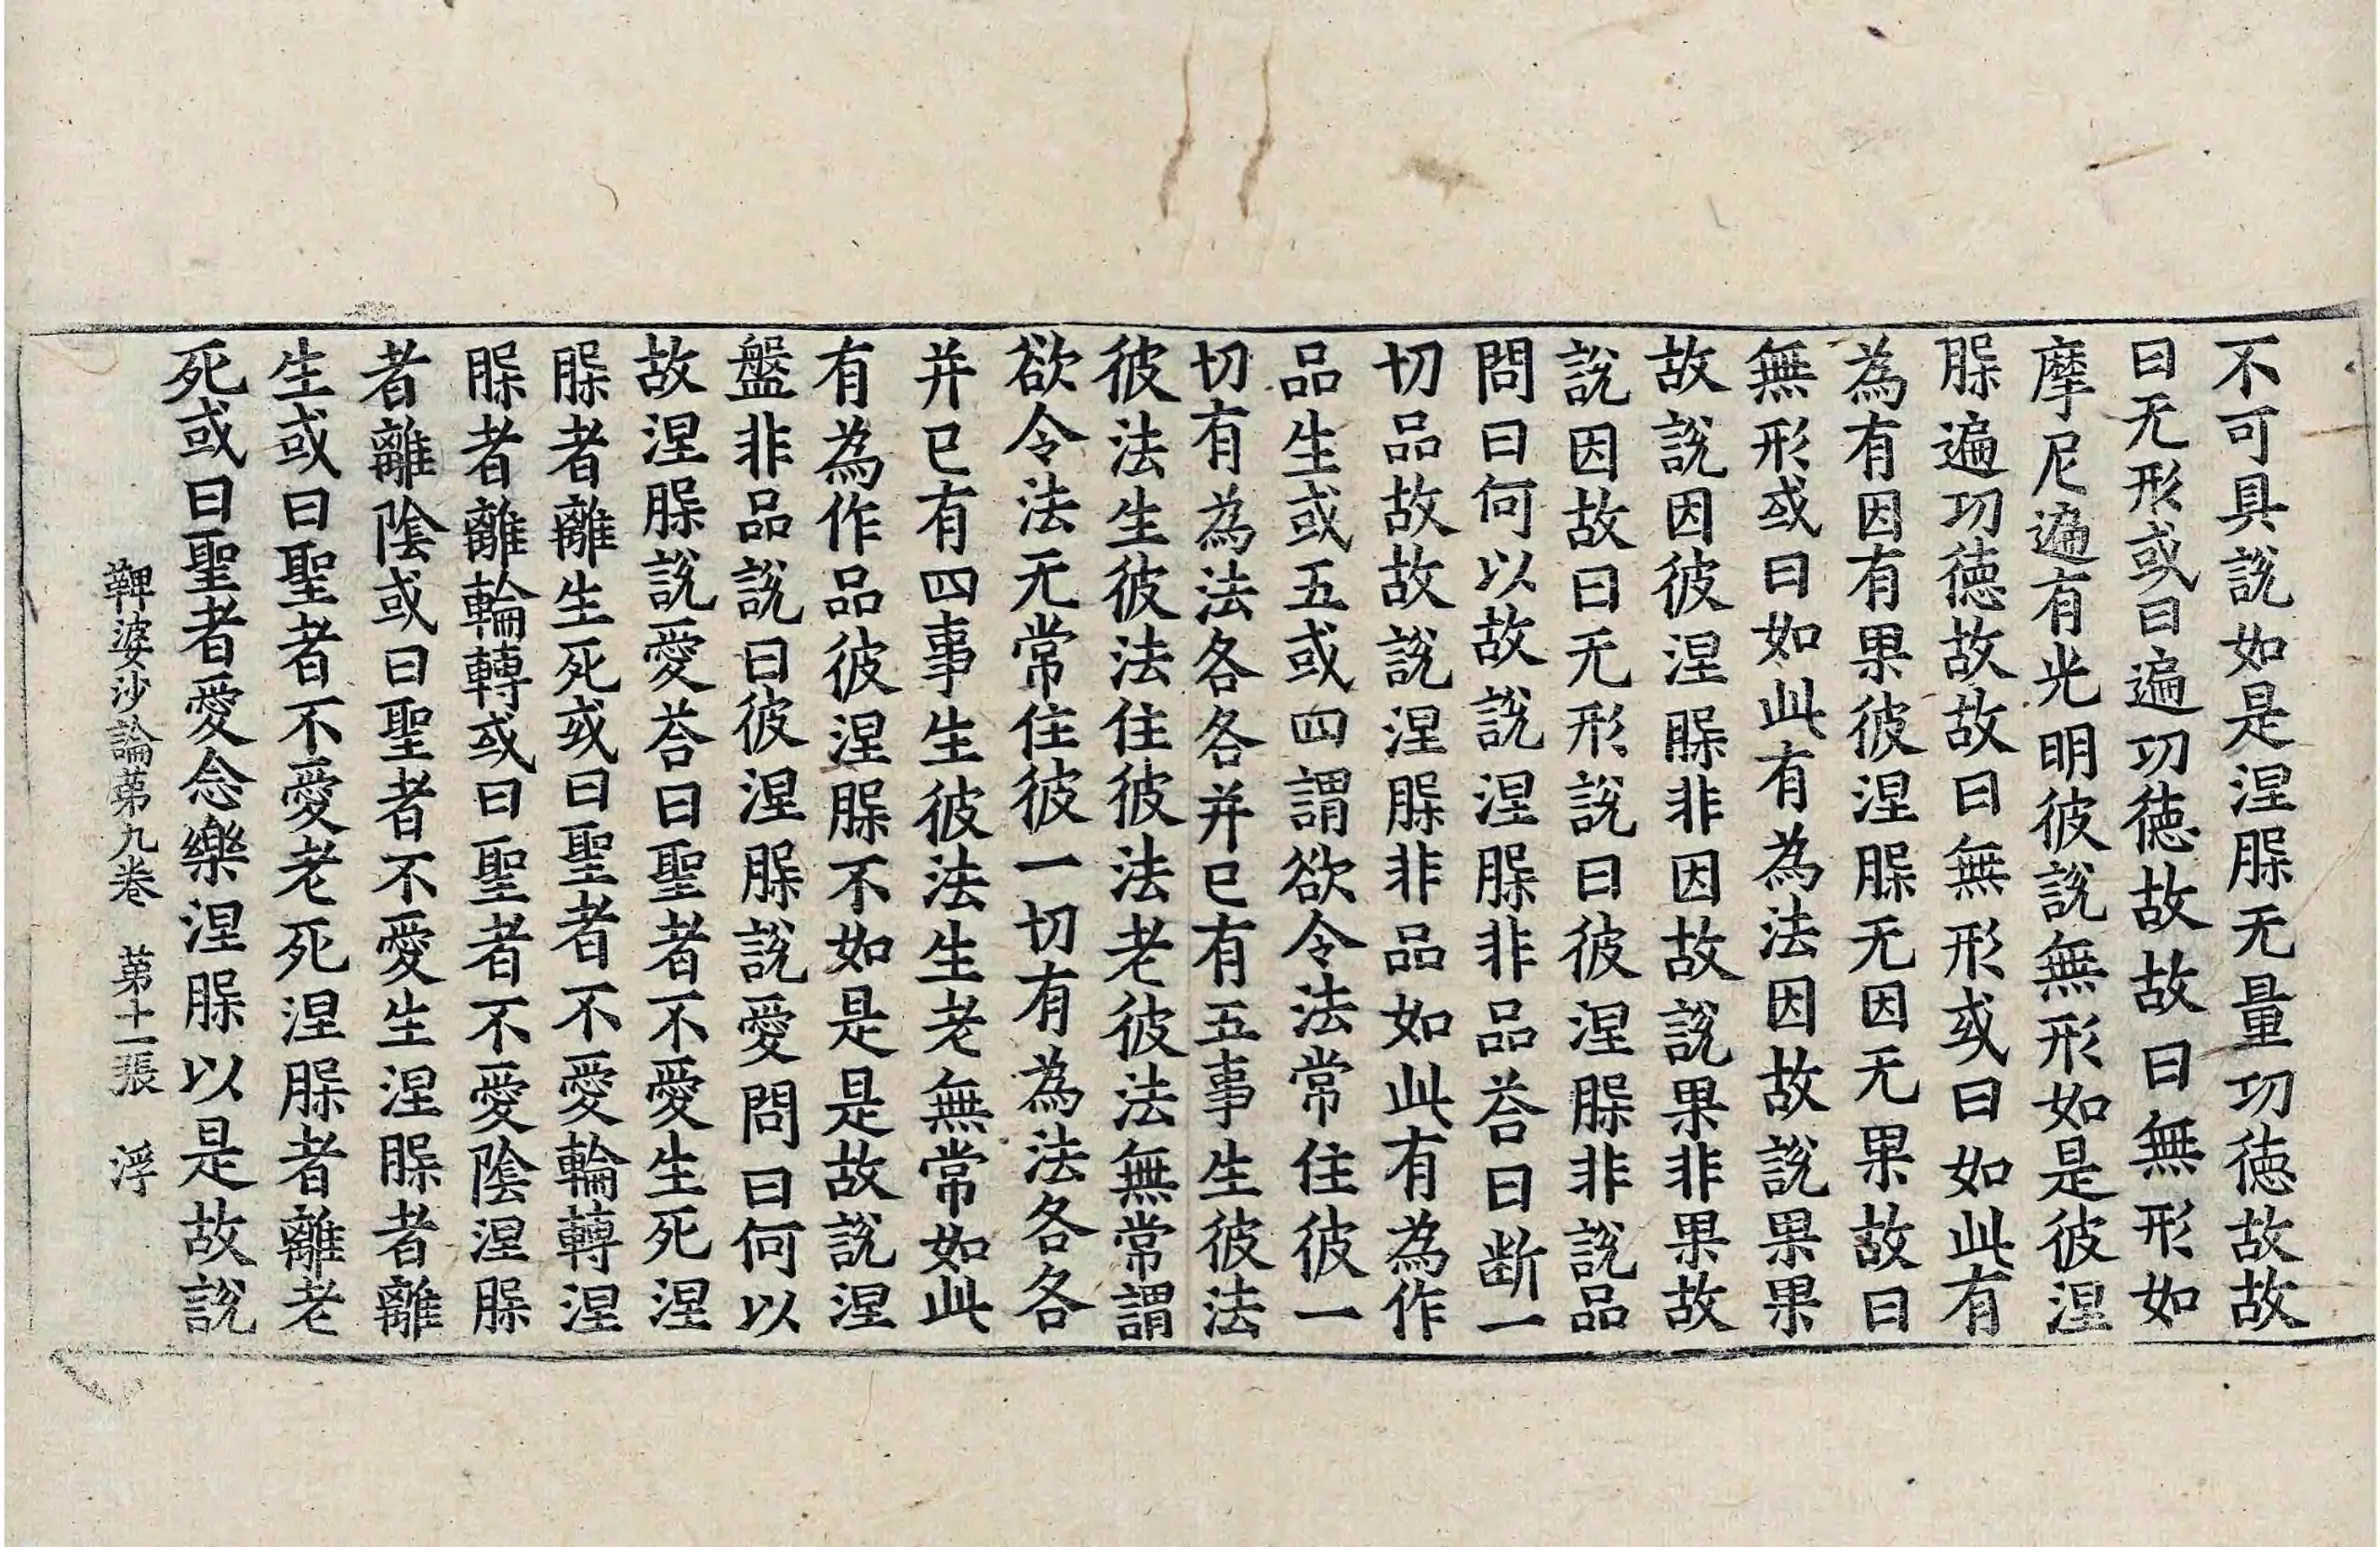 不可具說如是涅槃无量功徳故故
曰无形或曰遍功徳故故曰無形如
摩尼遍有光明彼說無形如是彼涅
槃遍功徳故故曰無形或曰如此有
為有因有果彼涅槃无因无果故曰
無形或曰如此有為法因故說果果
故說因彼涅槃非因故說果非果故
說因故曰无形說曰彼涅槃非說品
問曰何以故說涅槃非品荅曰断一
切品故故說涅槃非品如此有為作
品生或五或四謂欲令法常住彼一
切有為法各各并已有五事生彼法
彼法生彼法住彼法老彼法無常謂
欲令法无常住彼一切有為法各各
并已有四事生彼法生老無常如此
有為作品彼涅槃不如是是故說涅
盤非品說曰彼涅槃說愛問曰何以
故涅槃說愛荅曰聖者不愛生死涅
槃者離生死或曰聖者不愛輪轉涅
槃者離輪轉或曰聖者不愛陰涅槃
者離陰或曰聖者不愛生涅槃者離
生或曰聖者不愛老死涅槃者離老
死或曰聖者愛念樂涅槃以是故說
鞞婆沙論苐九卷 苐十一張 浮